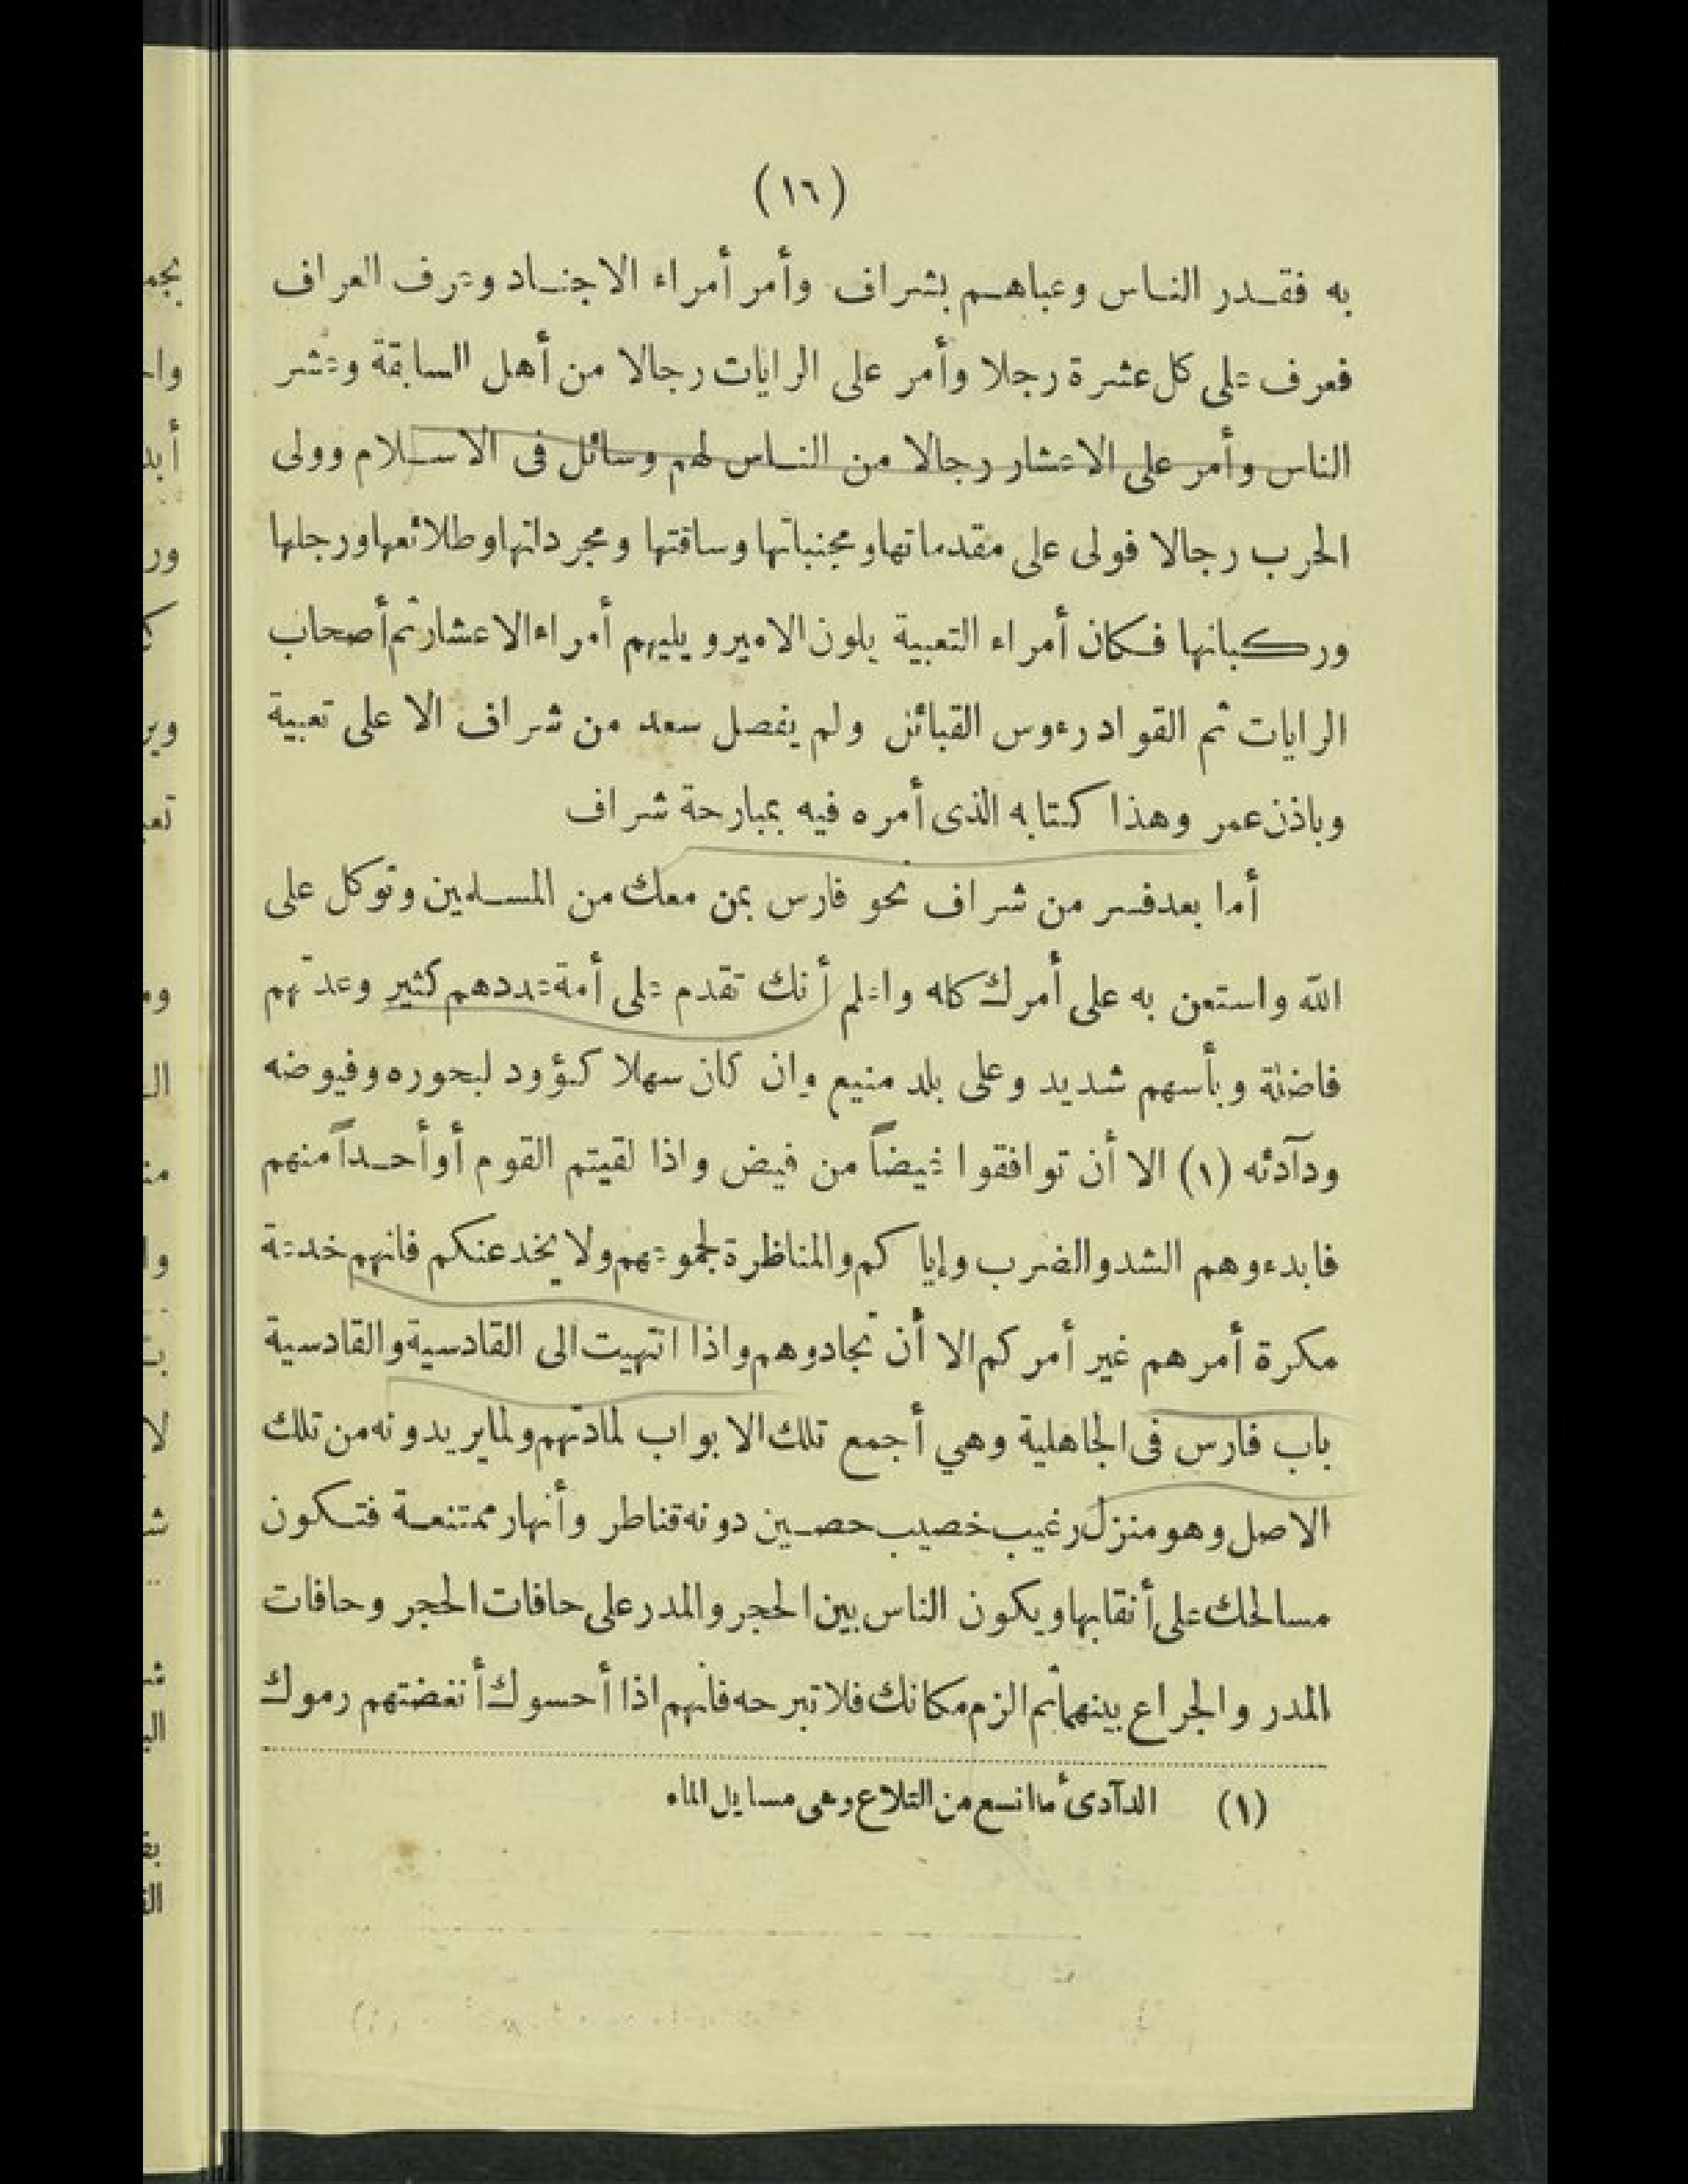 (١٦)
به فقدر الناس وعباهم بشراف وأمر أمراء الاجناد وعرف العراف
فعرف على كل عشرة رجلا وأمر على الرايات رجالا من أهل السابقة وعشر
الناس وأمر على الاعشار رجالا من الناس لهم وسائل فى الاسلام وولى
الحرب رجالا فولى على مقدماتها ومجنباتها وساقتها ومجرداتها وطلائعها ورجلها
وركبانها فكان أمراء التعبية يلون الامير ويليهم أمراء الاعشار ثم أصحاب
الرايات ثم القواد رءوس القبائل ولم يفصل سعد من شراف الا على تعبية
وباذن عمر وهذا كتابه الذى أمره فيه بمبارحة شراف
أما بعد فسر من شراف نحو فارس بمن معك من المسلمين وتوكل على
الله واستعن به على أمرك كله واعلم أنك تقدم على أمة عددهم كثير وعدتهم
فاضلة وبأسهم شديد وعلى بلد منيع وان كان سهلا كؤود لبحوره وفيوضه
ودآدئه (١) الا أن توافقوا غيضاً من فيض واذا لقيتم القوم أو أحداً منهم
فابدءوهم الشد والضرب وإياكم والمناظرة لجموعهم ولا يخدعنكم فانهم خدعة
مكرة أمرهم غير أمركم الا أن تجادوهم واذا انتهيت الى القادسية والقادسية
باب فارس فى الجاهلية وهي أجمع تلك الابواب لمادتهم ولما يريدونه من تلك
الاصل وهو منزل رغيب خصيب حصين دونه قناطر وأنهار ممتنعة فتكون
مسالحك على أنقابها ويكون الناس بين الحجر والمدر على حافات الحجر وحافات
المدر والجراع بينهما ثم الزم مكانك فلا تبرحه فانهم اذا أحسوك أنغضتهم رموك
(١) الدآدى ما اتسع من التلاع وهى مسايل الماء